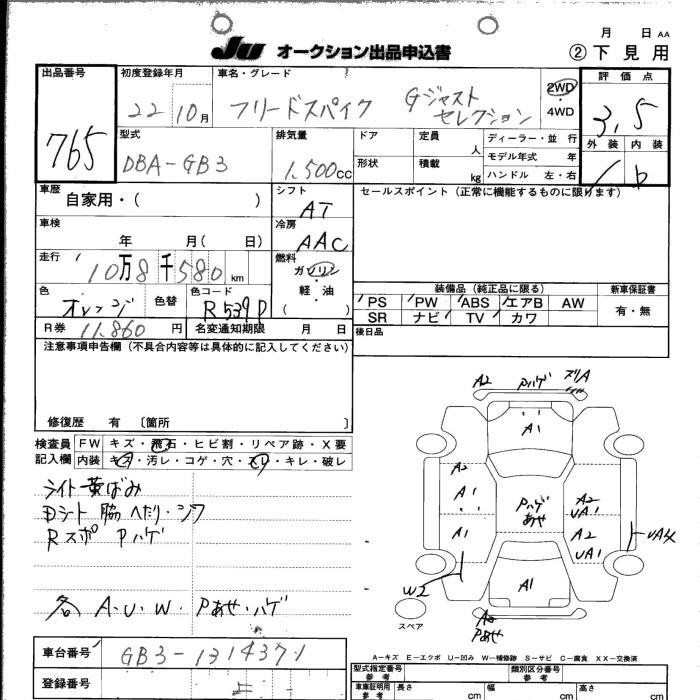 JU オークション出品申込書
月 日 AA
② 下見用
出品番号 765
初度登録年月 22 10月
車名・グレード フリードスパイク Gジャストセレクション
2WD・4WD
評価点 3.5
外装 内装
型式 DBA-GB3
排気量 1,500cc
ドア 定員 人
形状 積載 kg
ディーラー・並行
モデル年式 年
ハンドル 左・右
車歴 自家用・( )
シフト AT
セールスポイント (正常に機能するものに限ります)
車検 年 月( 日)
冷房 AAC
走行 10万8千580km
燃料 ガソリン・軽・油 ( )
色 オレンジ 色替 色コード R539P
装備品 (純正品に限る)
新車保証書 有・無
PS PW ABS エアB AW
SR ナビ TV カワ
R券 11,860円 名変通知期限 月 日
後日品
注意事項申告欄 (不具合内容等は具体的に記入してください)
修復歴 有 〔箇所 〕
検査員記入欄
FW キズ・飛石・ヒビ割・リペア跡・X要
内装 キズ・汚レ・コゲ・穴・・キレ・破レ
ライト黄ばみ
Dシート 脇 へたり・シワ
Rスポ Pハゲ
各 A・U・W・Pあせ・ハゲ
A2 Pハゲ ズリA
A1
A2
A1
A1
Pハゲ
あせ
A2
UA1
A2
UA1
UA4
W2
A1
スペア
Pあせ
A-キズ E-エクボ U-凹み W-補修跡 S-サビ C-腐食 XX-交換済
車台番号 GB3-1314371
登録番号
型式指定番号 参考
類別区分番号 参考
車庫証明用 参考 長さ cm 幅 cm 高さ cm